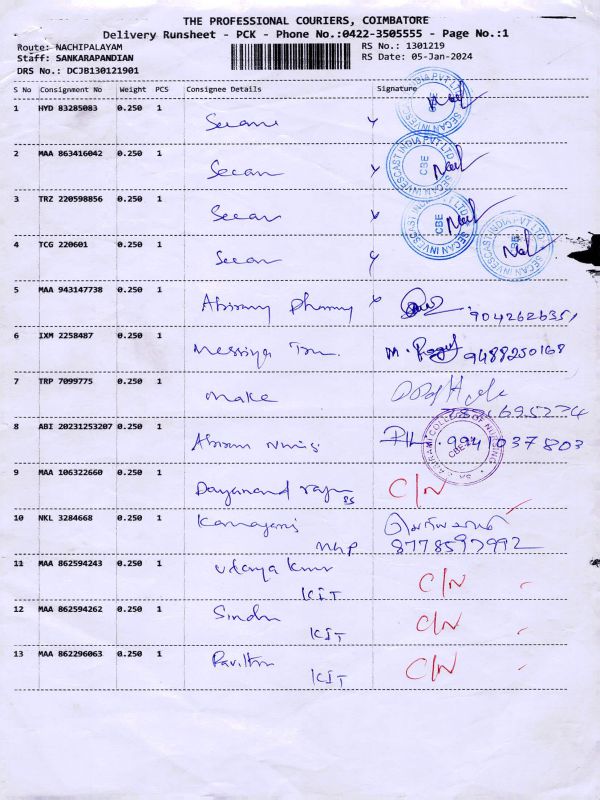 THE PROFESSIONAL COURIERS, COIMBATORE
Delivery Runsheet - PCK - Phone No.:0422-3505555 - Page No.:1
Route: NACHIPALAYAM
RS No.: 1301219
Staff: SANKARAPANDIAN
RS Date: 05-Jan-2024
DRS No.: DCJB130121901
S No Consignment No Weight PCS Consignee Details Signature
1 HYD 83285083 0.250 1 Secan
2 MAA 863416042 0.250 1 Secan
3 TRZ 220598856 0.250 1 Secan
4 TCG 220601 0.250 1 Secan
SECAN INVESCAST INDIA PVT LTD CBE
5 MAA 943147738 0.250 1 9042626351
6 IXM 2258487 0.250 1 9488250168
7 TRP 7099775 0.250 1 make
8 ABI 20231253207 0.250 1 9941037803
COLLEGE OF NURSING CBE
9 MAA 106322660 0.250 1 Dayanand C/N
10 NKL 3284668 0.250 1
8778597992
11 MAA 862594243 0.250 1 Udaya kumar C/N
KIT
12 MAA 862594262 0.250 1 Sindhu C/N
KIT
13 MAA 862296063 0.250 1 C/N
KIT